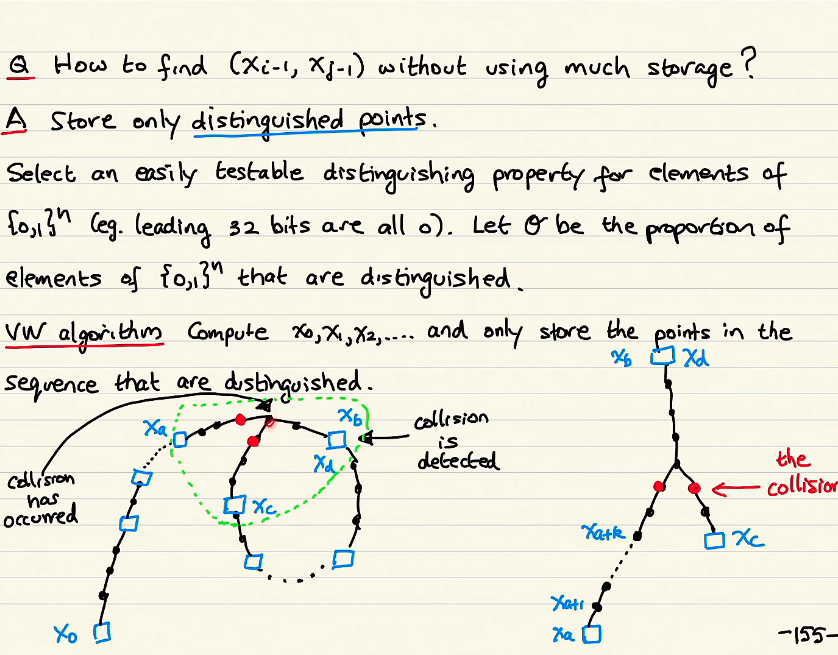 Q How to find (xi-1, xj-1) without using much storage?
A Store only distinguished points.
Select an easily testable distinguishing property for elements of
{0,1}ⁿ (eg. leading 32 bits are all 0). Let θ be the proportion of
elements of {0,1}ⁿ that are distinguished.
VW algorithm Compute x₀,x₁,x₂,.... and only store the points in the
sequence that are distinguished.
xb xd
xa
xb
xd
collision
is
detected
collision
has
occurred
xc
the
collision
xa+k
xc
xa+1
x₀
xa
-155-